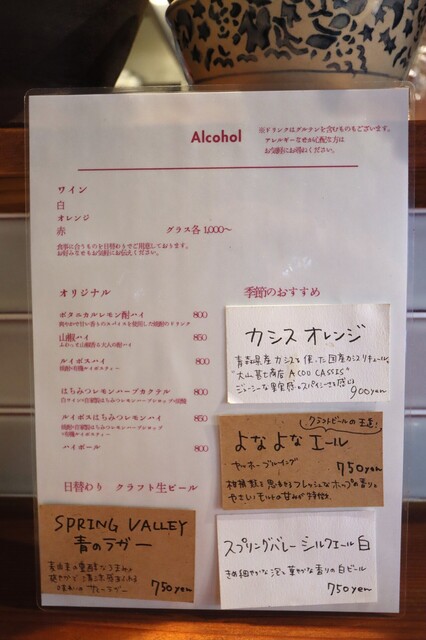 Alcohol
※ドリンクはグルテンを含むものもございます。
アレルギーなど心配な方は
お気軽にお尋ねください。
ワイン
白
オレンジ
赤
グラス各 1,000〜
食事に合うものを日替わりでご用意しております。
お好みなどもお気軽にお伝えください。
オリジナル
ボタニカルレモン酎ハイ 800
山椒ハイ 850
ルイボスハイ 800
はちみつレモンハーブカクテル 800
ルイボスはちみつレモンハイ 850
ハイボール 800
季節のおすすめ
カシス オレンジ
青森県産カシスを使った国産カシスリキュール。
900yen
クラフトビールの王道!
よなよなエール
ヤッホーブルーイング
750yen
柑橘類を思わせるフレッシュなホップの香りと
やさしいモルトの甘みが特徴。
日替わり クラフト生ビール
SPRING VALLEY
青のラガー
750yen
スプリングバレー シルクエール 白
きめ細やかな泡と華やかな香りの白ビール
750yen